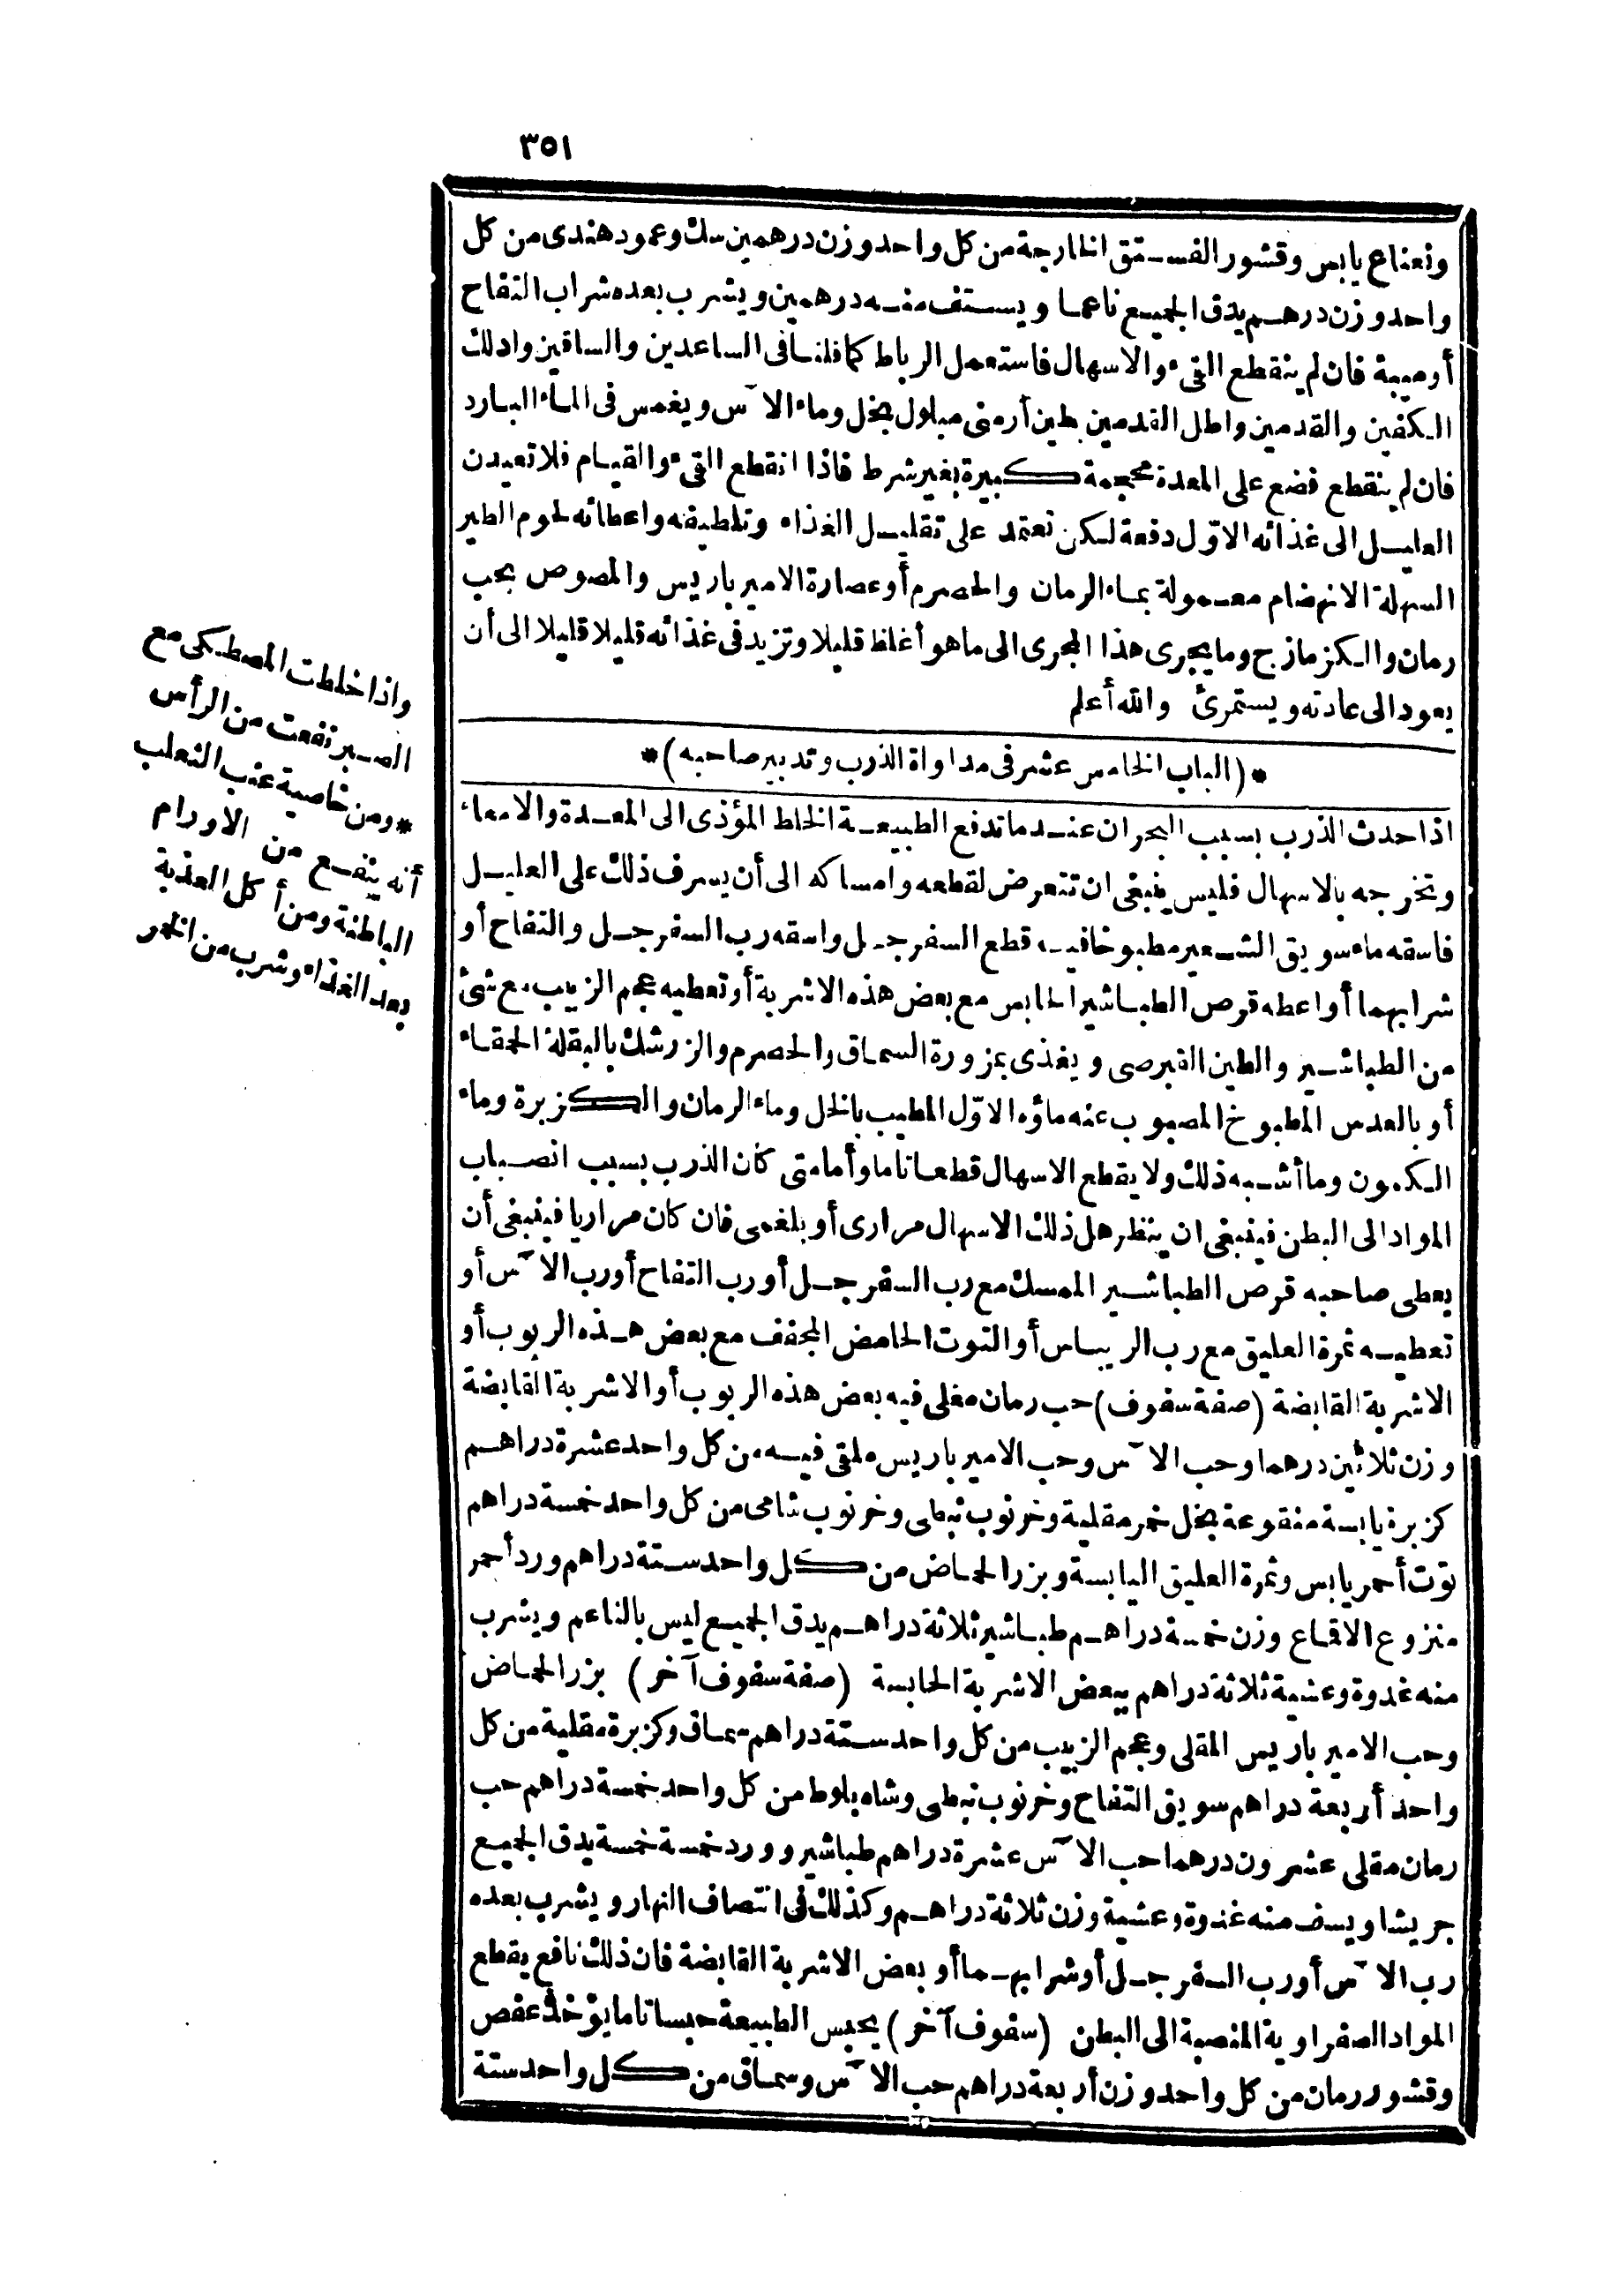 ٣٥١
ونعناع يابس وقشور الفستق الخارجة من كل واحد وزن درهمين سك وعود هندى من كل
واحد وزن درهم يدق الجميع ناعما ويستف منه درهمين ويشرب بعده شراب التفاح
أوميبة فان لم ينقطع القىء والاسهال فاستعمل الرباط كما قلنا فى الساعدين والساقين وادلك
الكفين والقدمين واطل القدمين بطين أرمنى مبلول بخل وماء الآس ويغمس فى الماء البارد
فان لم ينقطع فضع على المعدة محجمة كبيرة بغير شرط فاذا انقطع القىء والقيام فلا تعيدن
العليل الى غذائه الاوّل دفعة لكن تعتمد على تقليل الغذاء وتلطيفه واعطائه لحوم الطير
السهلة الانهضام معمولة بماء الرمان والحصرم أو عصارة الامير باريس والمصوص بحب
رمان والكزمازج وما يجرى هذا المجرى الى ما هو أغلظ قليلا وتزيد فى غذائه قليلا قليلا الى أن
يعود الى عادته ويستمرئ والله أعلم
*(الباب الخامس عشر فى مداواة الذرب وتدبير صاحبه)*
اذا حدث الذرب بسبب البحران عند ما تدفع الطبيعة الخلط المؤذى الى المعدة والامعاء
وتخرجه بالاسهال فليس ينبغى ان تتعرض لقطعه وامساكه الى أن يسرف ذلك على العليل
فاسقه ماء سويق الشعير مطبوخا فيه قطع السفرجل واسقه رب السفرجل والتفاح أو
شرابهما أو اعطه قرص الطباشير الحابس مع بعض هذه الاشربة أو تعطيه عجم الزبيب مع شئ
من الطباشير والطين القبرصى ويغذى بمزورة السماق والحصرم والزرشك بالبقلة الحمقاء
أو بالعدس المطبوخ المصبوب عنه ماؤه الاوّل المطيب بالخل وماء الرمان والكزبرة وماء
الكمون وما أشبه ذلك ولا يقطع الاسهال قطعا تاما وأما متى كان الذرب بسبب انصباب
المواد الى البطن فينبغى ان ينظر هل ذلك الاسهال مرارى أو بلغمى فان كان مراريا فينبغى أن
يعطى صاحبه قرص الطباشير الممسك مع رب السفرجل أو رب التفاح أو رب الآس أو
تعطيه ثمرة العليق مع رب الريباس أو التوت الحامض المجفف مع بعض هذه الربوب أو
الاشربة القابضة (صفة سفوف) حب رمان مغلى فيه بعض هذه الربوب أو الاشربة القابضة
وزن ثلاثين درهما وحب الآس وحب الامير باريس ملقى فيه من كل واحد عشرة دراهم
كزبرة يابسة منقوعة بخل خمر مقلية وخرنوب نبطى وخرنوب شامى من كل واحد خمسة دراهم
توت أحمر يابس وثمرة العليق اليابسة وبزر الحماض من كل واحد ستة دراهم ورد أحمر
منزوع الاقماع وزن خمسة دراهم طباشير ثلاثة دراهم يدق الجميع ليس بالناعم ويشرب
منه غدوة وعشية ثلاثة دراهم ببعض الاشربة الحابسة (صفة سفوف آخر) بزر الحماض
وحب الامير باريس المقلى وعجم الزبيب من كل واحد ستة دراهم سماق وكزبرة مقلية من كل
واحد أربعة دراهم سويق التفاح وخرنوب نبطى وشاه بلوط من كل واحد خمسة دراهم حب
رمان مقلى عشرون درهما حب الآس عشرة دراهم طباشير وورد خمسة خمسة يدق الجميع
جريشا ويسف منه غدوة وعشية وزن ثلاثة دراهم وكذلك فى انتصاف النهار ويشرب بعده
رب الآس أو رب السفرجل أو شرابهما أو بعض الاشربة القابضة فان ذلك نافع يقطع
المواد الصفراوية المنصبة الى البطن (سفوف آخر) يحبس الطبيعة حبسا تاما يؤخذ عفص
وقشور رمان من كل واحد وزن أربعة دراهم حب الآس وسماق من كل واحد ستة
واذا خلطت المصطكى مع
الصبر نفعت من الرأس
*ومن خاصية عنب الثعلب
أنه ينفع من الاورام
الباطنة ومن أكل العذبة
بعد الغذاء وشرب من الخمر